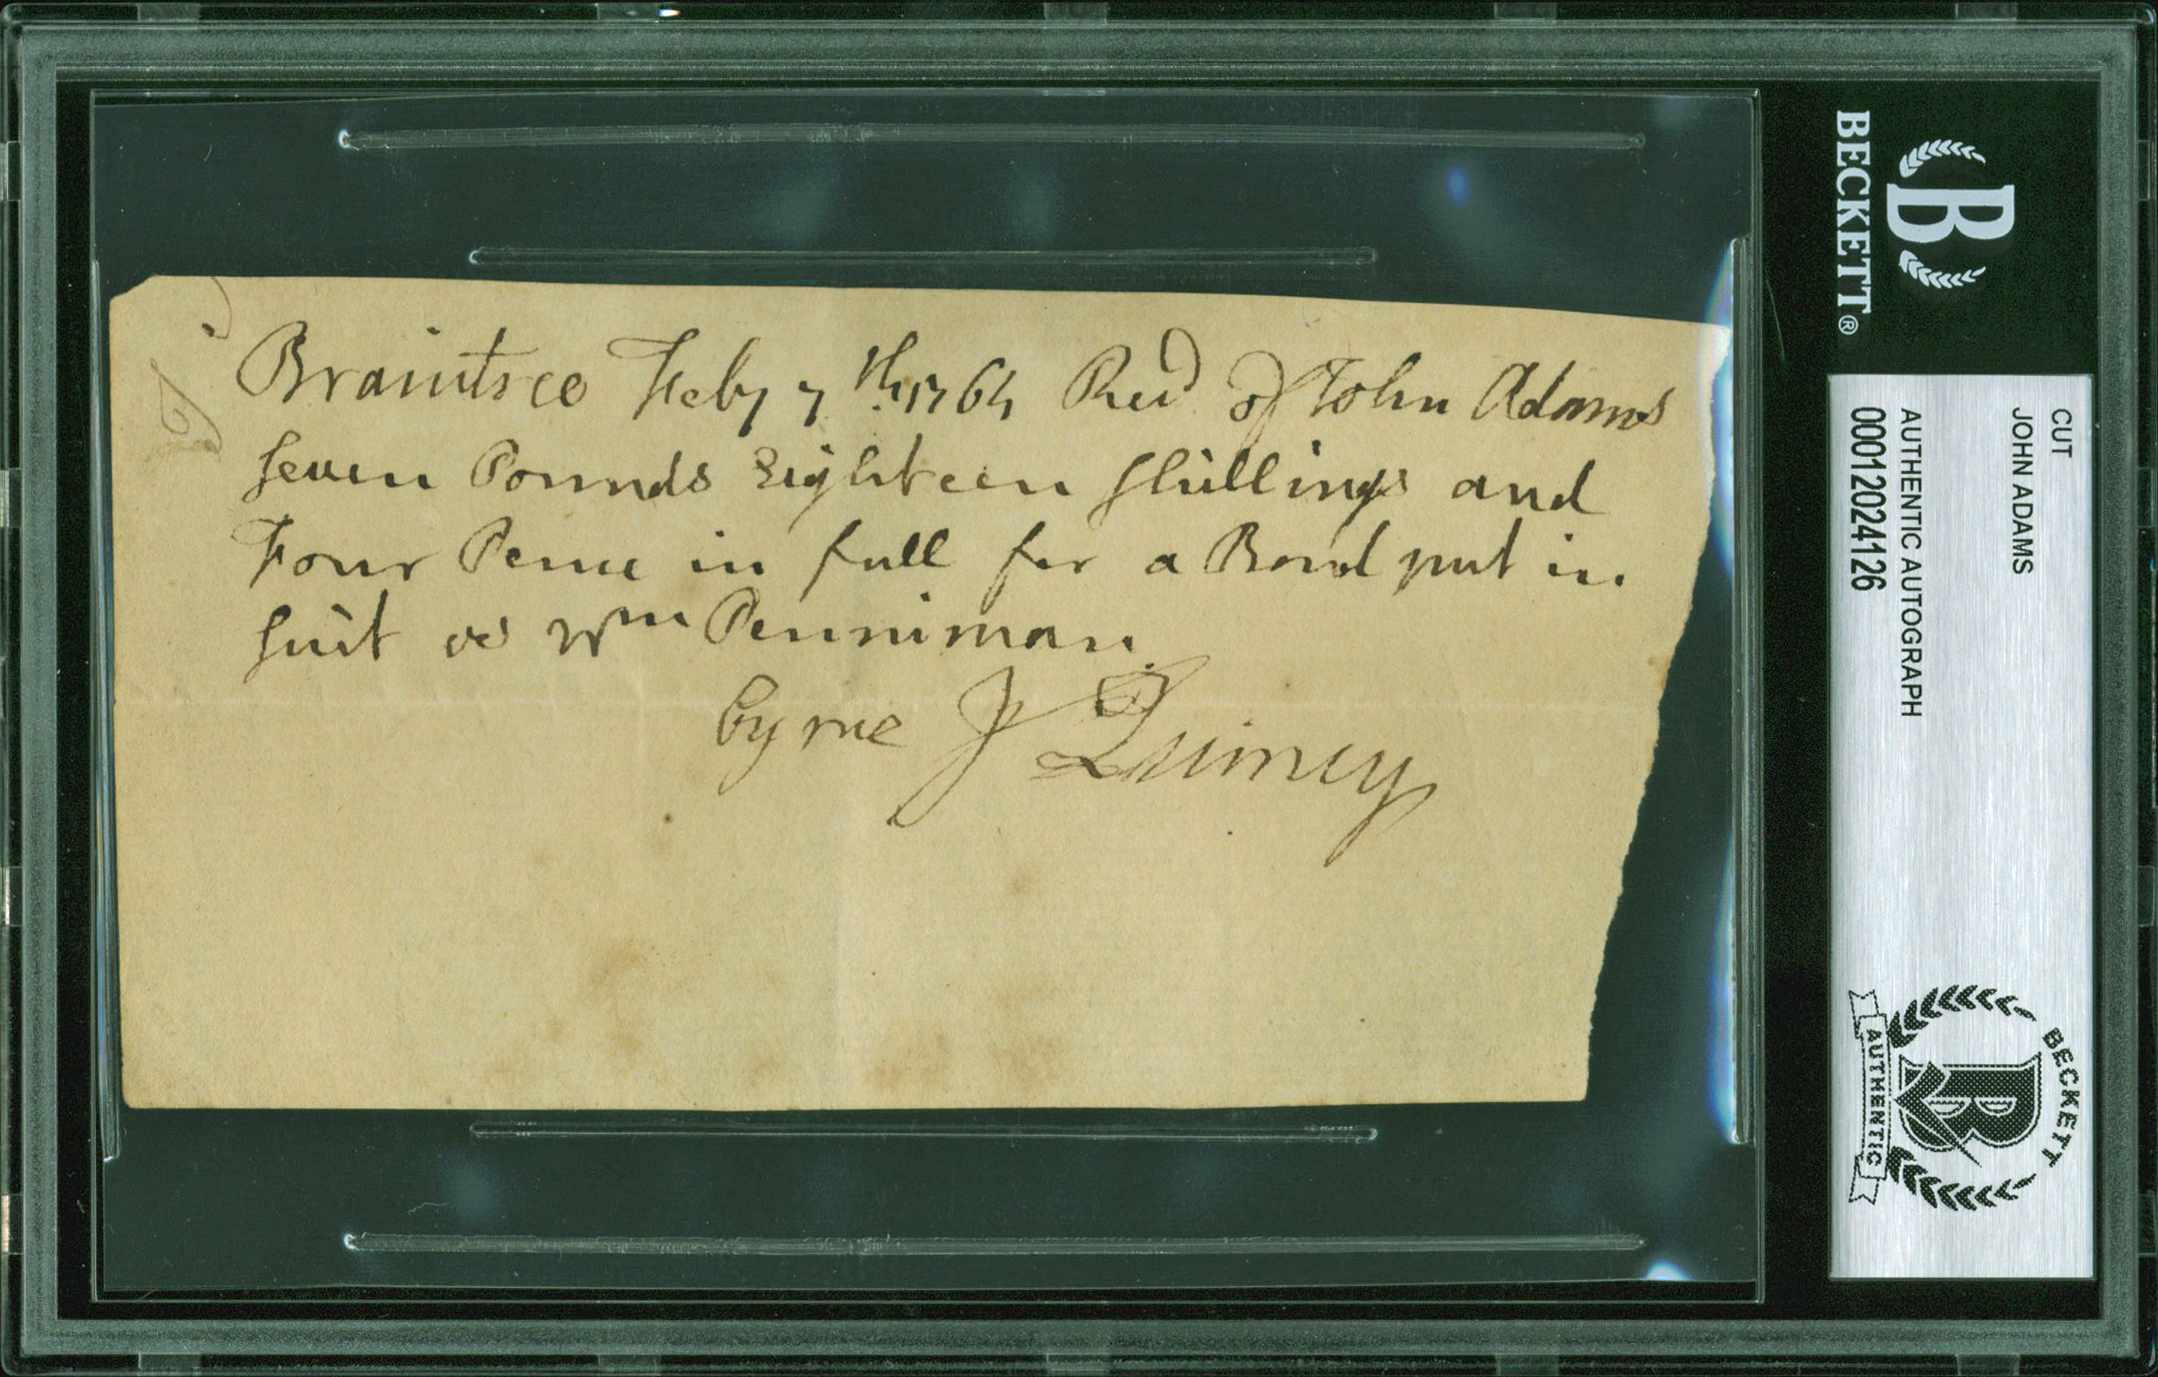 Braintree Feby 7th 1764 Recd of John Adams
Seven Pounds Eighteen Shillings and
Four Pence in full for a Bond put in
Suit vs Wm Penniman
by me J Quincy
BECKETT®
B
CUT
JOHN ADAMS
AUTHENTIC AUTOGRAPH
00012024126
BECKETT
B
AUTHENTIC